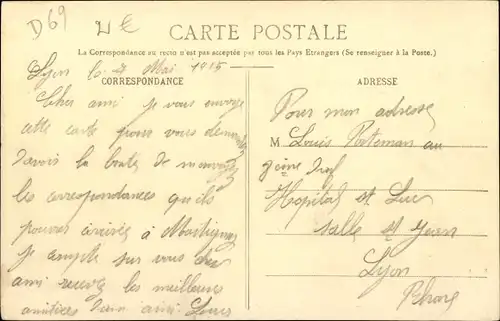 D69
2 €
CARTE POSTALE
La Correspondance au recto n'est pas acceptée par tous les Pays Etrangers (Se renseigner à la Poste.)
Lyon le 4 Mai 1915
CORRESPONDANCE
Cher ami je vous envoye
cette carte pour vous demander
davoir la bonté de menvoyez
les correspondances quils
pouvez arrivés à Martignez
je compte sur vous cher
ami recevez les meilleures
amitiées dun ami Louis
ADRESSE
Pour mon adresse
M Louis au
7ème
Hopital st Luc
salle st Jean
Lyon
Rhone